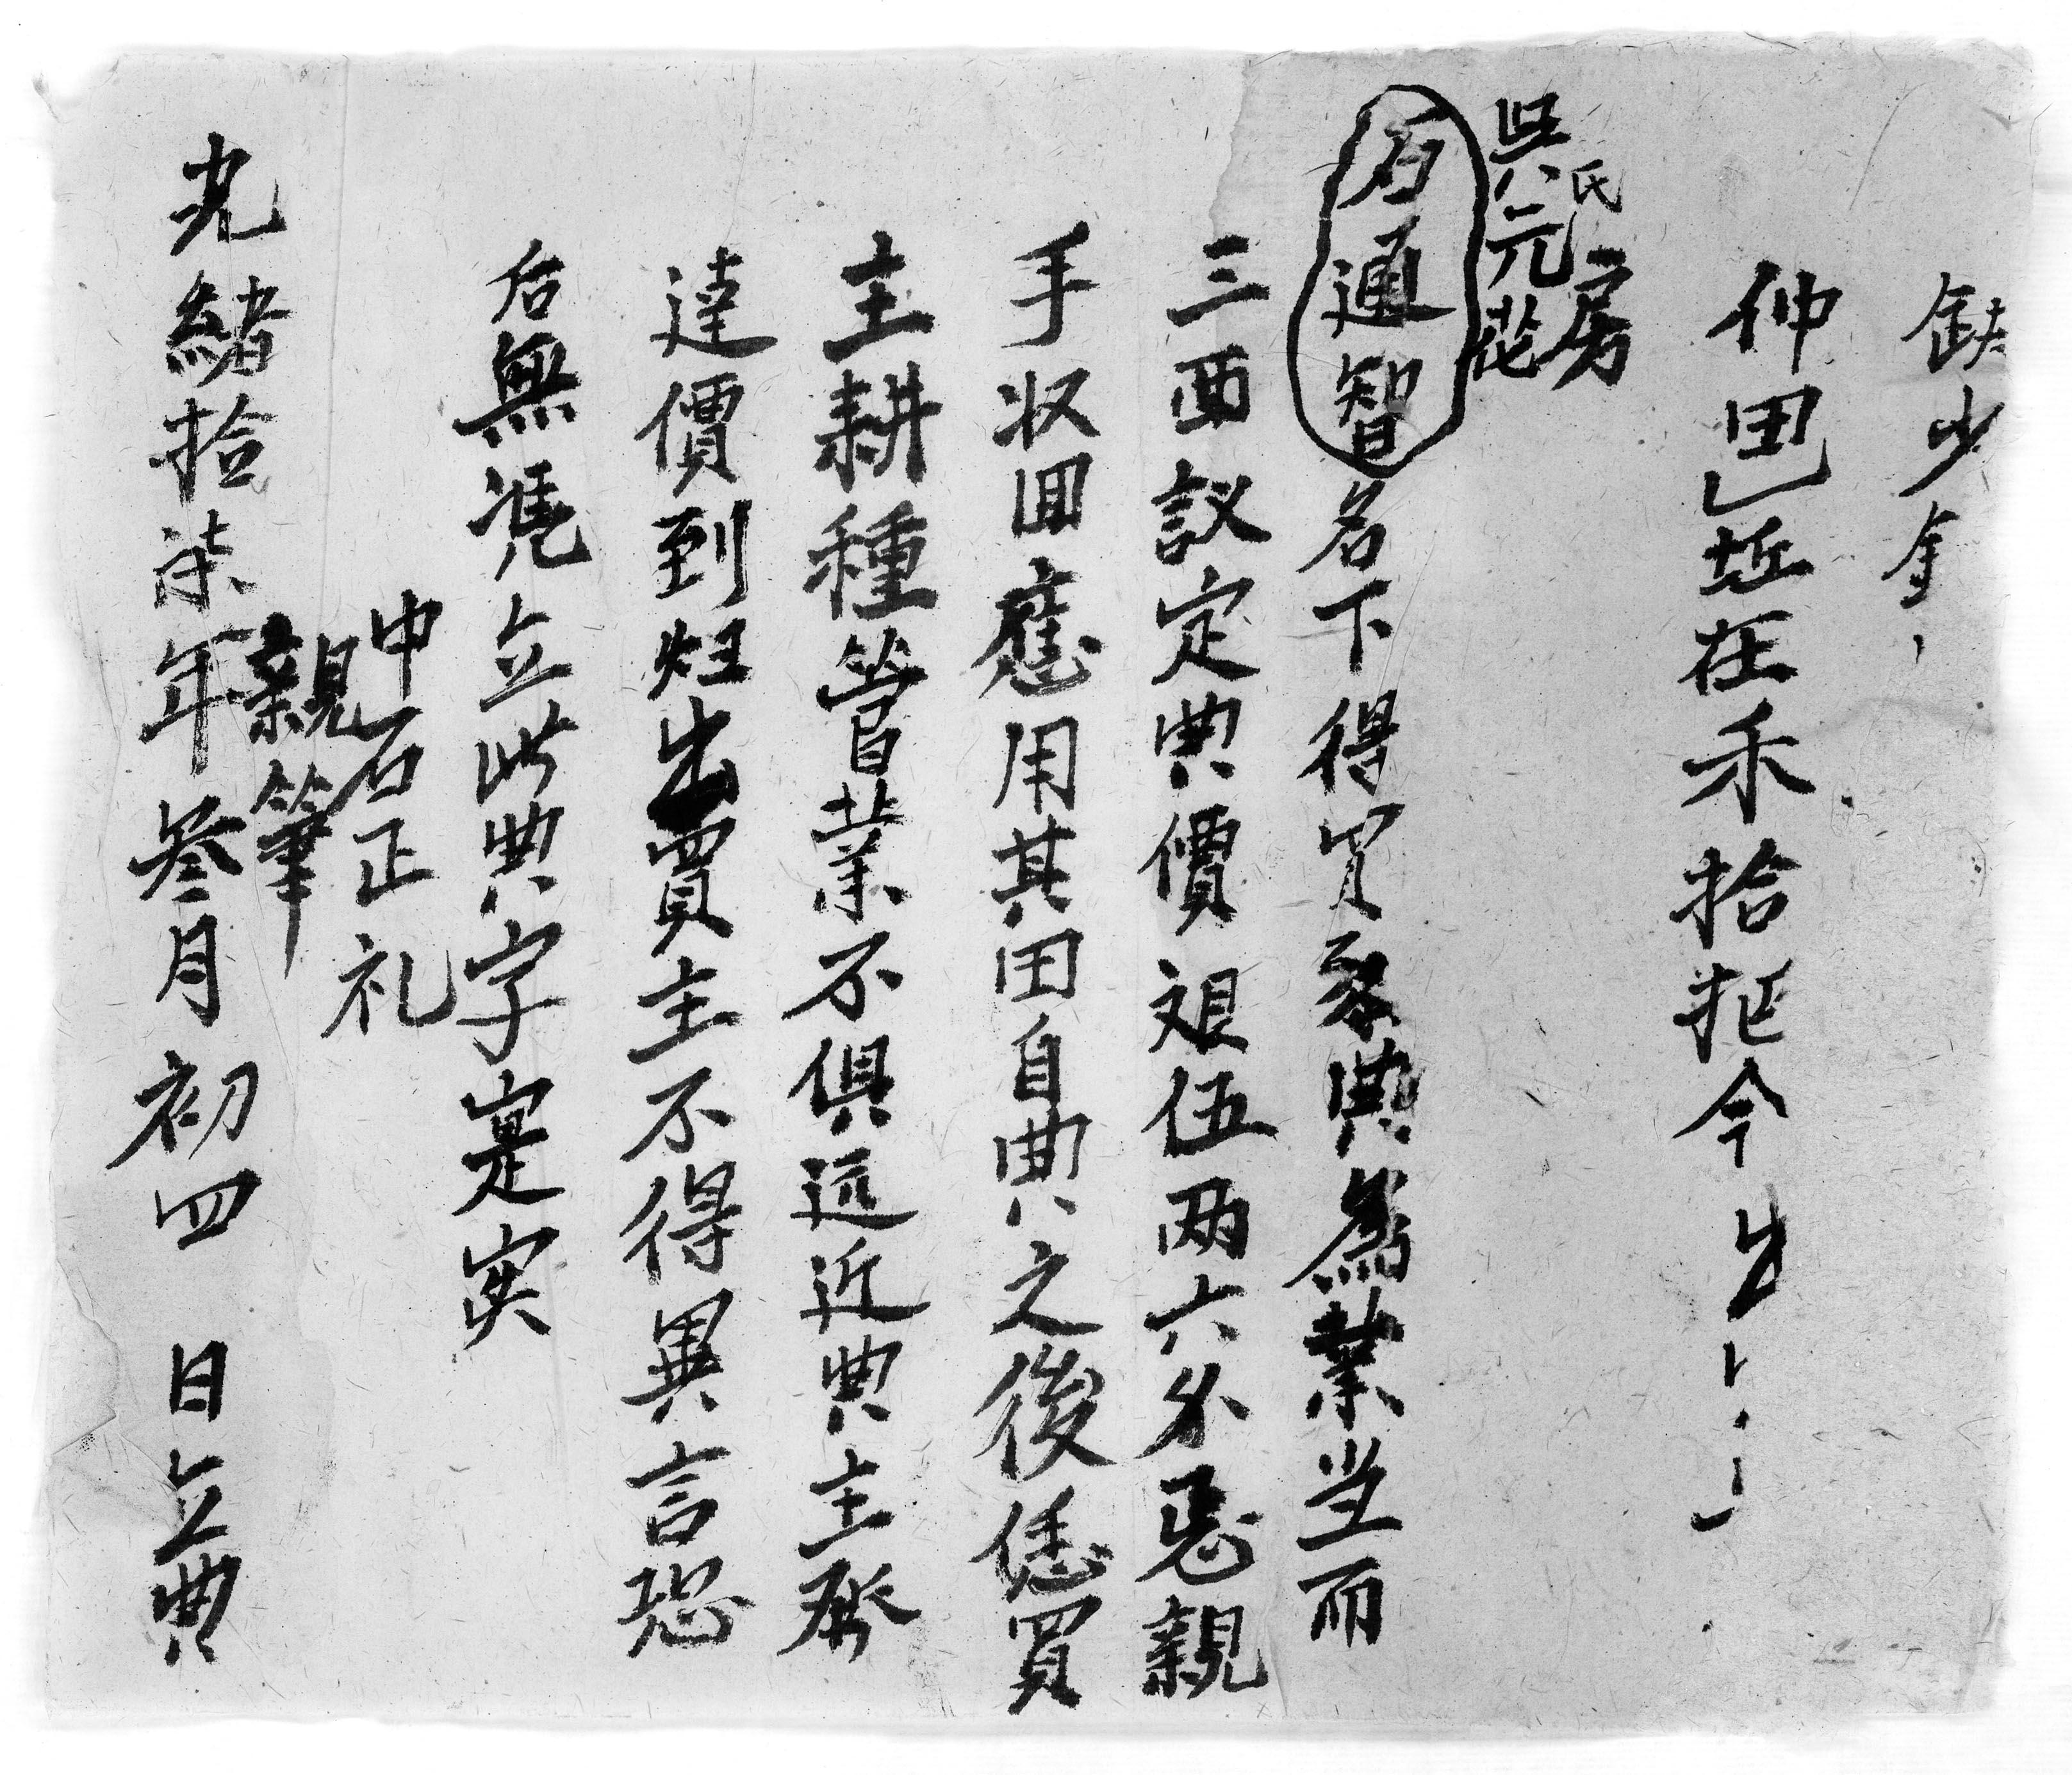 缺少金
仲田坵在禾拾把今出
房
吳氏元花
石通智名下得買承典為業当面
三面議定典價艮伍両六分悉親
手收回應用其田自典之後恁買
主耕種管業不俱遠近典主承
達價到炷出買主不得異言恐
后無憑立此典字寔实
中石正礼
親筆
光緒拾柒年叁月初四日立典